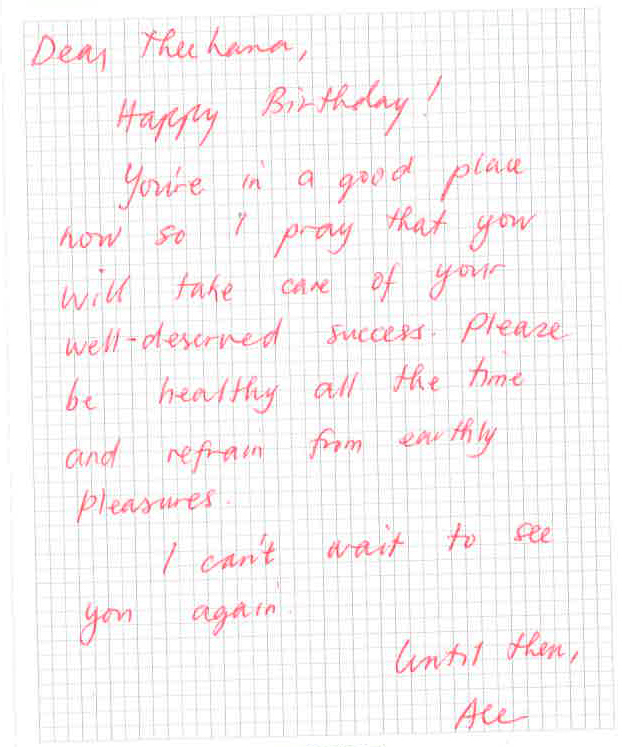 Dear Theehana,
Happy Birthday!
You're in a good place
now so I pray that you
will take care of your
well-deserved success. Please
be healthy all the time
and refrain from earthly
pleasures.
I can't wait to see
you again.
Until then,
Ace